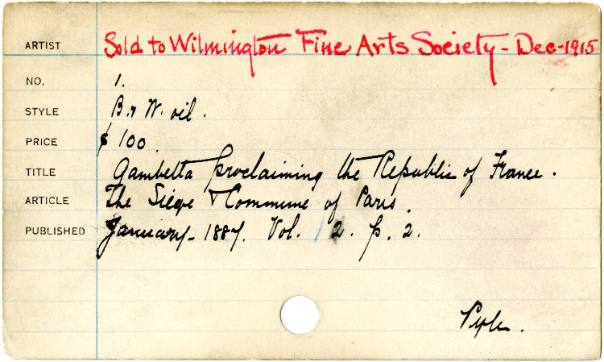 ARTIST Sold to Wilmington Fine Arts Society - Dec-1915
NO. 1.
STYLE B. & W. oil.
PRICE $100.
TITLE Gambetta proclaiming the Republic of France.
ARTICLE The Siege & Commune of Paris.
PUBLISHED January - 1887. Vol. 1 2. p. 2.
Pyle.